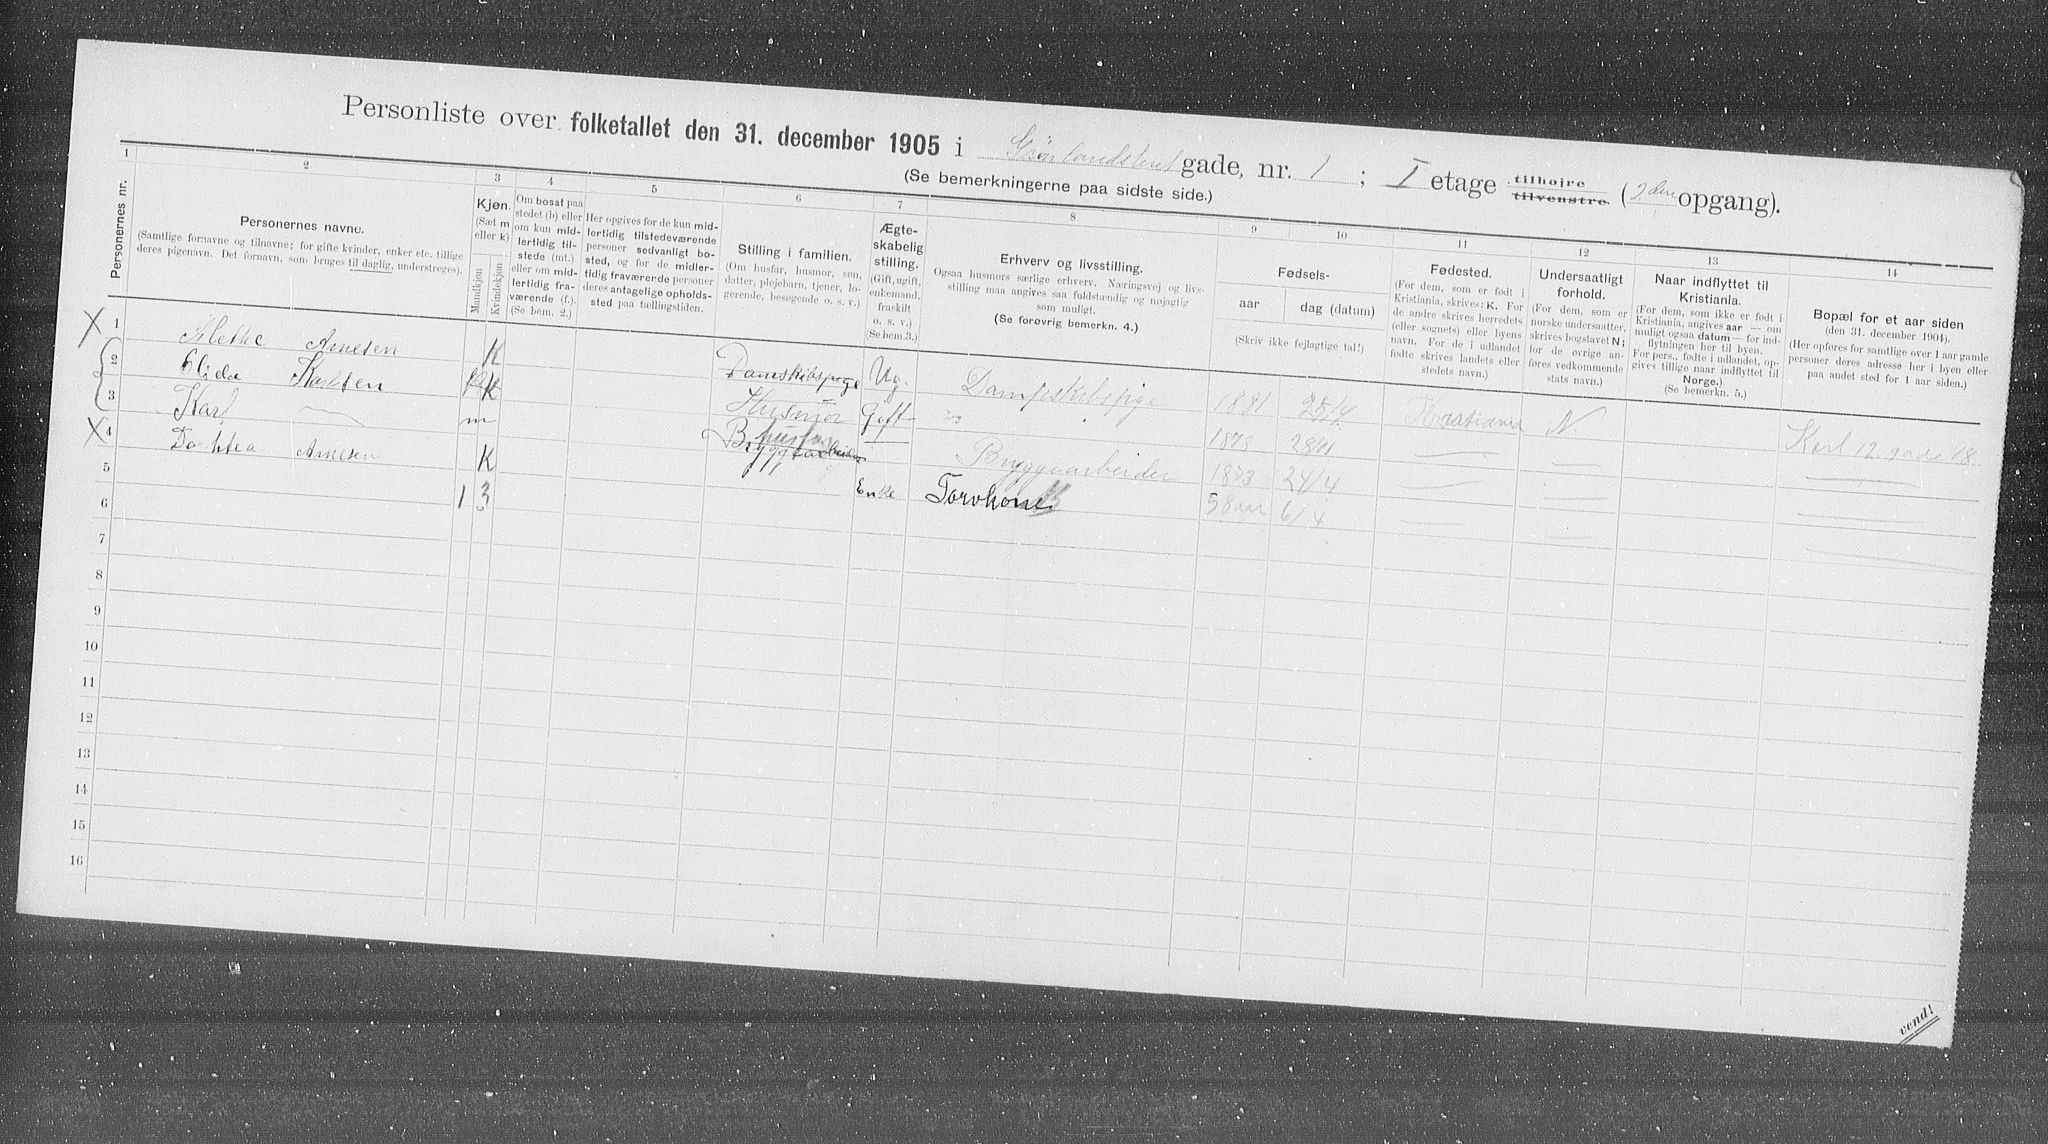 Personliste over folketallet den 31. december 1905 i Grønlandsleret gade, nr. 1 ; I etage tilhøjre tilvenstre. (2den opgang).
(Se bemerkningerne paa sidste side.)
1 2 3 4 5 6 7 8 9 10 11 12 13 14
Personernes nr.
Personernes navne.
(Samtlige fornavne og tilnavne; for gifte kvinder, enker etc. tillige
deres pigenavn. Det fornavn, som bruges til daglig, understreges).
Kjøn.
(Sæt m
eller k)
Mandkjøn
Kvindekjøn
Om bosat paa
stedet (b) eller
om kun mid-
lertidig til-
stede (mt.)
eller om mid-
lertidig fra-
værende (f.).
(Se bem. 2.)
Her opgives for de kun mid-
lertidig tilstedeværende
personer sedvanligt bo-
sted, og for de midler-
tidig fraværende personer
deres antagelige opholds-
sted paa tællingstiden.
Stilling i familien.
(Om husfar, husmor, søn,
datter, plejebarn, tjener, lo-
gerende, besøgende o. s. v.)
Ægte-
skabelig
stilling.
(Gift, ugift,
enkemand,
fraskilt
o. s. v.)
(Se bem.3.)
Erhverv og livsstilling.
Ogsaa husmors særlige erhverv. Næringsvej og livs-
stilling maa angives saa fuldstændig og nøjagtig
som muligt.
(Se forøvrig bemerkn. 4.)
Fødsels-
aar
dag (datum)
(Skriv ikke fejlagtige tal!)
Fødested.
(For dem, som er født i
Kristiania, skrives: K. For
de andre skrives herredets
(eller sognets) eller byens
navn. For de i udlandet
fødte skrives landets eller
stedets navn.)
Undersaatligt
forhold.
(For dem, som er
norske undersaatter,
skrives bogstavet N;
for de øvrige an-
føres vedkommende
stats navn.)
Naar indflyttet til
Kristiania.
(For dem, som ikke er født i
Kristiania, angives aar — om
muligt ogsaa datum — for ind-
flytningen her til byen.
For pers., fødte i udlandet, op-
gives tillige naar indflyttet til
Norge.)
(Se bemerkn. 5.)
Bopæl for et aar siden
(den 31. december 1904).
(Her opføres for samtlige over 1 aar gamle
personer deres adresse her i byen eller
paa andet sted for 1 aar siden.)
X 1 Alethe Arnesen K Damskibspige Ug. Dampskibspige 1881 25/4 Kristiania N Karl 12. gade 18
2 Elida Karlsen K Husmor Gift 1878 28/11
3 Karl m husfar Bryggearbeider Bryggearbeider 1873 24/4
X 4 Dorthea Arnesen K Enke Torvkone 58 aar 6/4
5 1 3
6
7
8
9
10
11
12
13
14
15
16
vend!